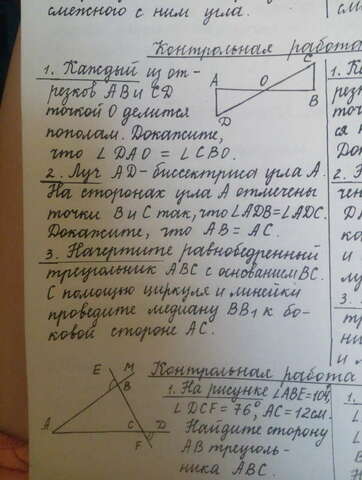 смежного с ним угла.
Контрольная работа
1. Каждый из от-
резков АВ и CD
точкой О делится
пополам. Докажите,
что ∠DAO = ∠CBO.
A
O
C
B
D
2. Луч AD - биссектриса угла А.
На сторонах угла А отмечены
точки В и С так, что ∠ADB=∠ADC.
Докажите, что АВ = АС.
3. Начертите равнобедренный
треугольник АВС с основанием ВС.
С помощью циркуля и линейки
проведите медиану ВВ₁ к бо-
ковой стороне АС.
Контрольная работа
1. На рисунке ∠ABE=104°,
∠DCF = 76°, AC = 12см.
Найдите сторону
АВ треуголь-
ника АВС.
E
M
B
A
C
D
F